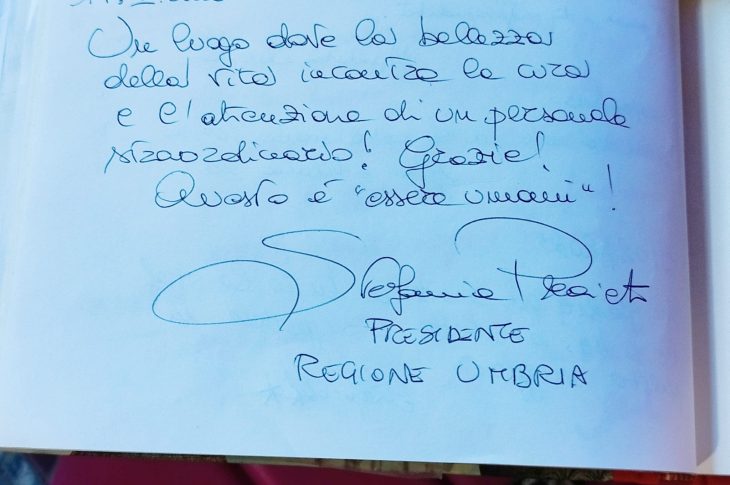 Un luogo dove la bellezza
della vita incontra la cura
e l'attenzione di un personale
straordinario! Grazie!
Questo è "essere umani"!
Stefania Proietti
PRESIDENTE
REGIONE UMBRIA